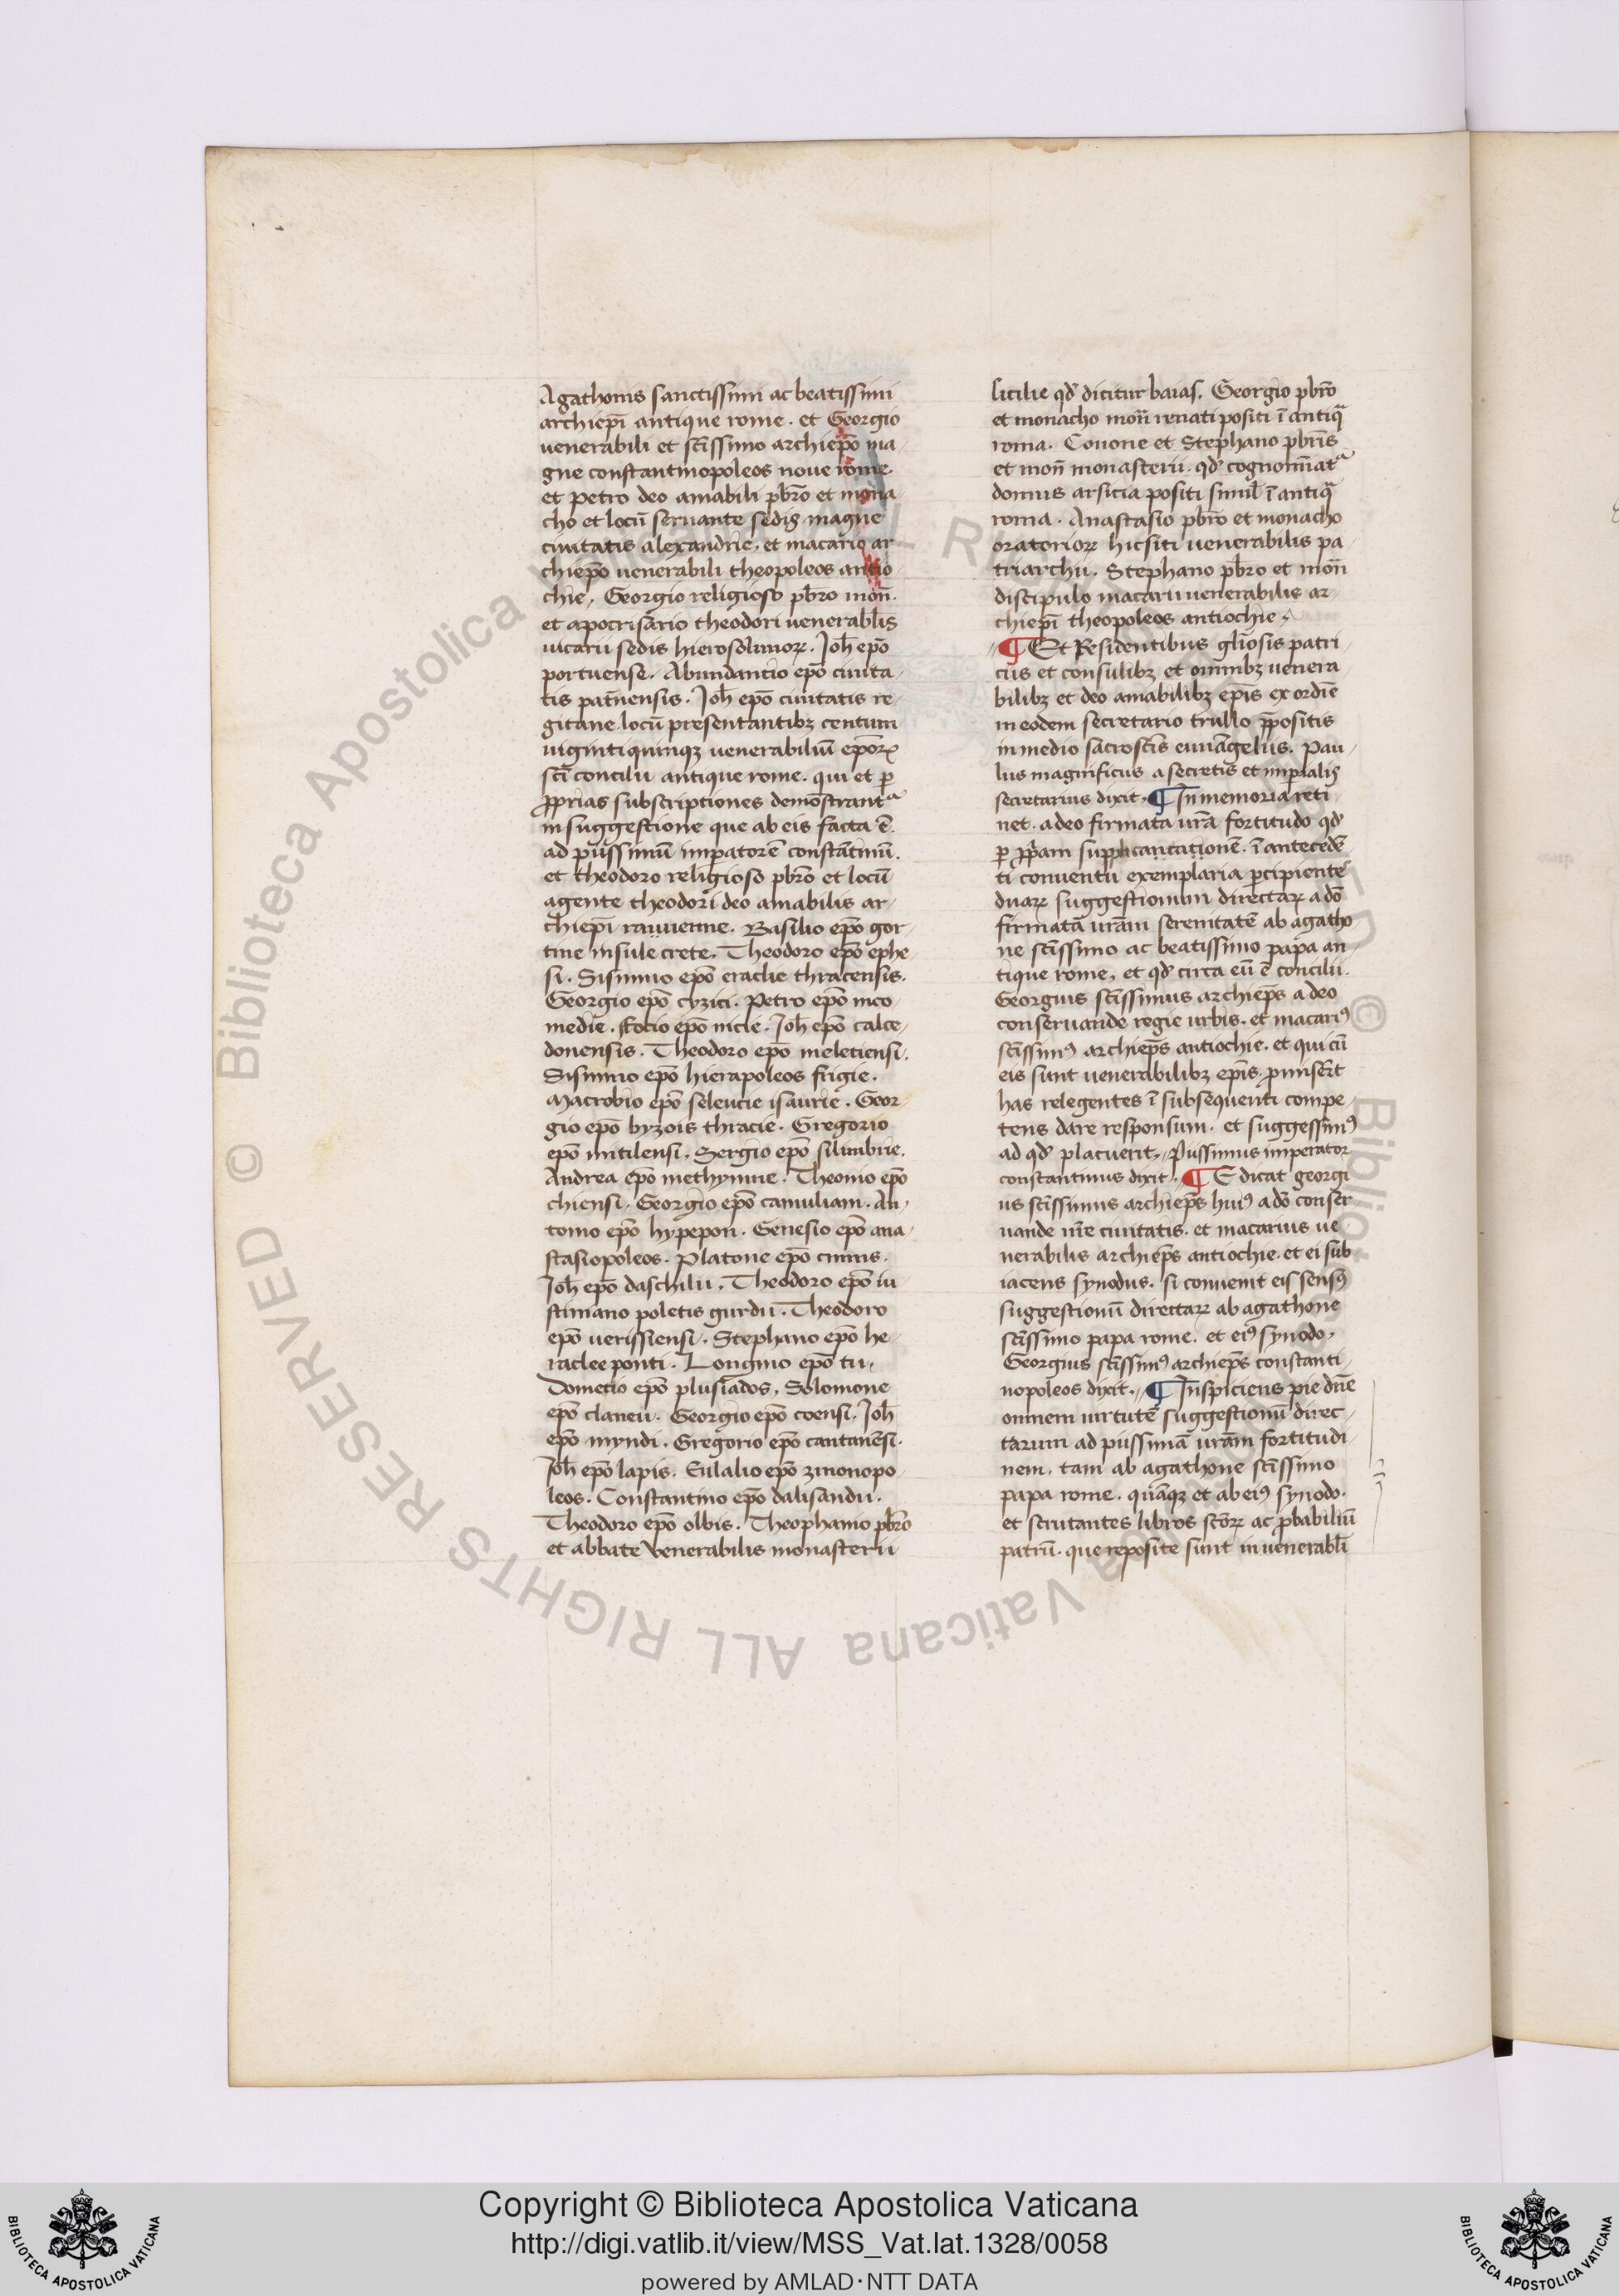 Agathonis sanctissimi ac beatissimi
archiepī antique rome. et Georgio
uenerabili et scīssimo archiepō ma-
gne constantinopoleos noue rome.
et petro deo amabili pbrō et mona
cho et locū seruante sedis magne
ciuitatis alexandrie, et macario ar-
chiepō uenerabili theopoleos antio-
chie, Georgio religioso pbrō mon̄.
et apocrisario theodori uenerabłis
uicarii sedis hierosolimoꝝ. Joh̄ epō
portuense. Abundantio epō ciuita-
tis pat̄nensis. Joh̄ epō ciuitatis re-
gitane locū presentantibꝫ centum
uigintiquinqꝫ uenerabiliū epōrꝝ
scī concilii antique rome. qui et ꝑ
ꝓprias subscriptiones demōstrantʳ
in suggestione que ab eis facta ē.
ad piissimū impatorē constātinū.
et theodoro religioso pbrō et locū
agente theodori deo amabilis ar-
chiepī rauuenne. Basilio epō gor-
tine insule crete. Theodoro epō ephe-
si. Sisinnio epō eraclie thracensis.
Georgio epō cyzici. Petro epō nico-
medie. Focio epō nicie. Joh̄ epō calce-
donensis. Theodoro epō meletiensi.
Sisinnio epō hierapoleos frigie.
Macrobio epō seleucie isaurie. Geor-
gio epō byzois thracie. Gregorio
epō mitilensi. Sergio epō silimbrie.
Andrea epō methymne. Theonio epō
chiensi. Georgio epō camuliam. An-
tonio epō hypepon. Genesio epō ana-
stasiopoleos. Platone epō cinnis.
Joh̄ epō daschilii. Theodoro epō iu
stiniano poletis gurdii. Theodoro
epō uerissiensi. Stephano epō he-
raclee ponti. Longino epō tii.
Dometio epō plusiados. Solomone
epō claneii. Georgio epō coensi. Joh̄
epō myndi. Gregorio epō cantanēsi.
Joh̄ epō lapis. Eulalio epō zinonopo
leos. Constantino epō dalisandii.
Theodoro epō olbis. Theophanio pbrō
et abbate venerabilis monasterii
sicilie qđ dicitur baias. Georgio pbrō
et monacho mon̄ renati positi ī antiqᵃ
roma. Conone et Stephano pbrīs
et mon̄ monasterii. qđ cognomīatʳ
domus arsicia positi simił ī antiqᵃ
roma. Anastasio pbrō et monacho
oratorioꝝ hicsiti uenerabilis pa-
triarchii. Stephano pbrō et mon̄
discipulo macarii uenerabilis ar
chiepī theopoleos antiochie.
¶ Et Residentibus gl̄iosis patri
ciis et consulibꝫ et omībꝫ uenera-
bilibꝫ et deo amabilibꝫ epīs ex ordīe
in eodem secretario trullo ꝓpositis
in medio sacroscīs euuāgeliis. Pau-
lus magnificus a secretis et imꝑialis
secretarius dixit. ¶ In memoria reti-
net. adeo firmata urā fortitudo qđ
ꝑ ꝓpam supplicantationē. ī antecedē
ti conuentu exemplaria ꝑcipiente
duaꝝ suggestionum directaꝝ a dō
firmatā urām serenitatē ab agatho-
ne scīssimo ac beatissimo papa an-
tique rome, et qđ circa eū ē concilii.
Georgius scīssimus archiepс̄ a deo
conseruande regie urbis. et macariꝰ
scīssimꝰ archiepс̄ antiochie. et qui cū
eis sunt uenerabilibꝫ epīs. ꝓmiserūt
has relegentes ī subsequenti compe-
tens dare responsum. et suggessimꝰ
ad qđ placuerit. Piissimus imperator
constantinus dixit. ¶ Edicat georgi
us scīssimus archiepс̄ huiꝰ a dō conser
uande nr̄e ciuitatis. et macarius ue-
nerabilis archiepс̄ antiochie. et ei sub
iacens synodus. si conuenit eis sensꝰ
suggestionū directaꝝ ab agathone
scīssimo papa rome. et eiꝰ synodo,
Georgius scīssimꝰ archiepс̄ constanti-
nopoleos dixit. ¶ Inspiciens pie dn̄e
omnem uirtutē suggestionū direc-
tarum ad piissimā urām fortitudi-
nem. tam ab agathone scīssimo
papa rome. quāqꝫ et ab eiꝰ synodo.
et scrutantes libros scōꝝ ac ꝓbabiliū
patrū. que reposite sunt in uenerabłi
© Biblioteca Apostolica Vaticana ALL RIGHTS RESERVED
Copyright © Biblioteca Apostolica Vaticana
http://digi.vatlib.it/view/MSS_Vat.lat.1328/0058
powered by AMLAD·NTT DATA
BIBLIOTECA APOSTOLICA VATICANA
BIBLIOTECA APOSTOLICA VATICANA